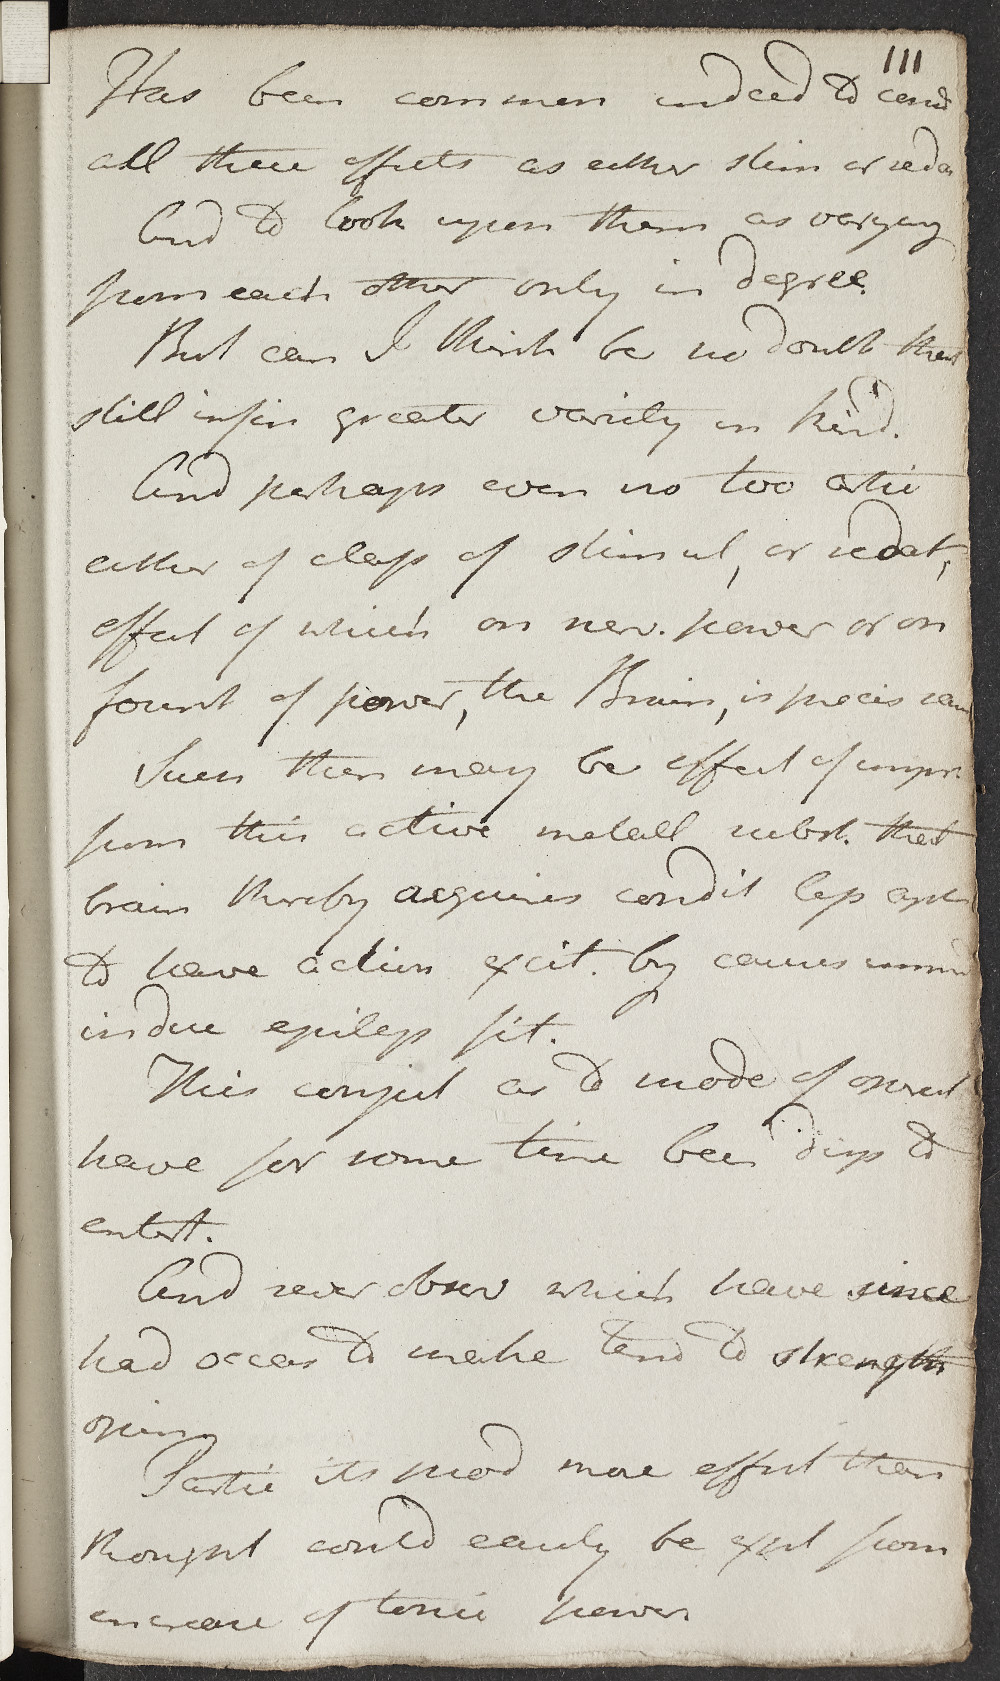 111
Has been common indeed to cons
all these effects as either stim or seda
And to look upon them as varying
from each other only in degree.
But can I think be no doubt that
still infin greater variety in kind.
And perhaps even no two artic
either of class of stimul, or sedat,
effect of which on nerv. power or on
fount of power, the Brain, is precis sam
Such then may be effect of impr
from this active metall subst. that
brain thereby acquires condit less apt
to have action excit. by causes
induc epilep fit.
This conject as to mode of operat
have for some time been disp to
entert.
And sever observ which have since
had occas to make tend to strength
opin
Partic its prod more effect than
thought could easily be expt from
increase of tonic power